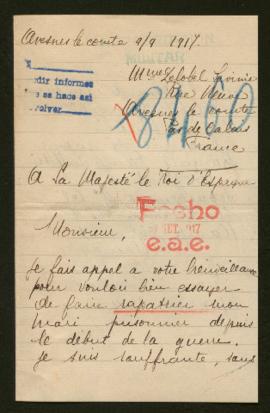 Avesnes le comte 9/9 1917.
Mme
Rue
Avesnes le comte
Pas de Calais
France
dir informes
e se hace asi
olver
81160
A Sa Majesté le Roi d'Espagne
Fecho
SET. 917
e.a.e.
Monsieur,
Je fais appel à votre bienveillance
pour vouloir bien essayer
de faire rapatrier mon
mari prisonnier depuis
le début de la guerre.
Je suis souffrante, sans